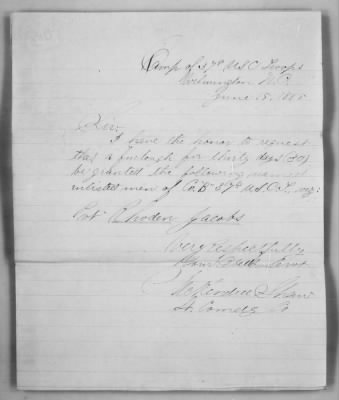 Camp of 37th U.S.C. Troops
Wilmington N.C.
June 15, 1865
Sir:
I have the honor to request
that a furlough for thirty days (30)
be granted the following named
enlisted men of Co. "B" 37th U.S.C.T., viz:
Pvt Rhoden Jacobs
Very respectfully
Your Obdt. Servt
McKendree Shaw
Lt. Comdg Co